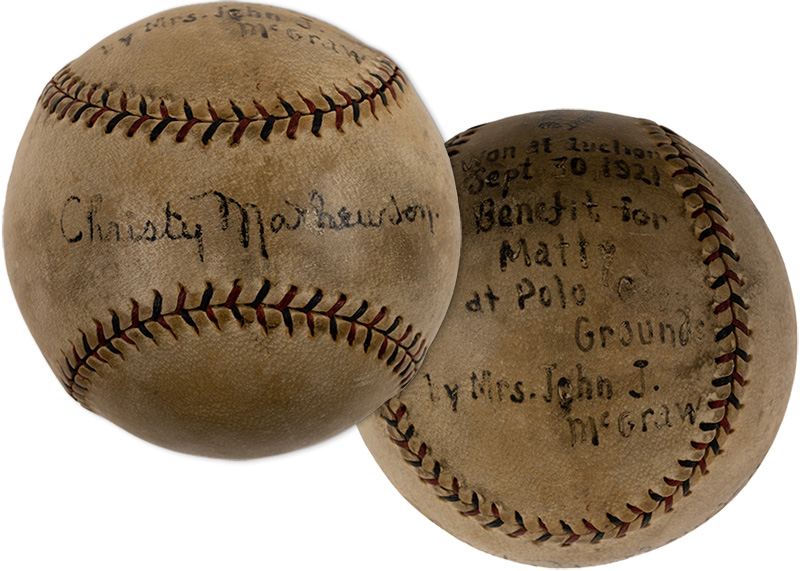 by Mrs. John J.
McGraw
Christy Mathewson
Won at Auction
Sept 30 1921
Benefit for
Matty
at Polo
Grounds
by Mrs. John J.
McGraw